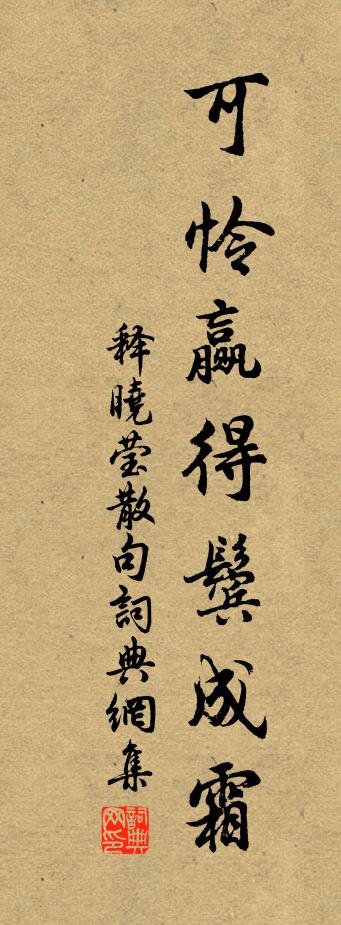 可怜赢得鬓成霜
释晓莹散句詞典網集
詞典网印